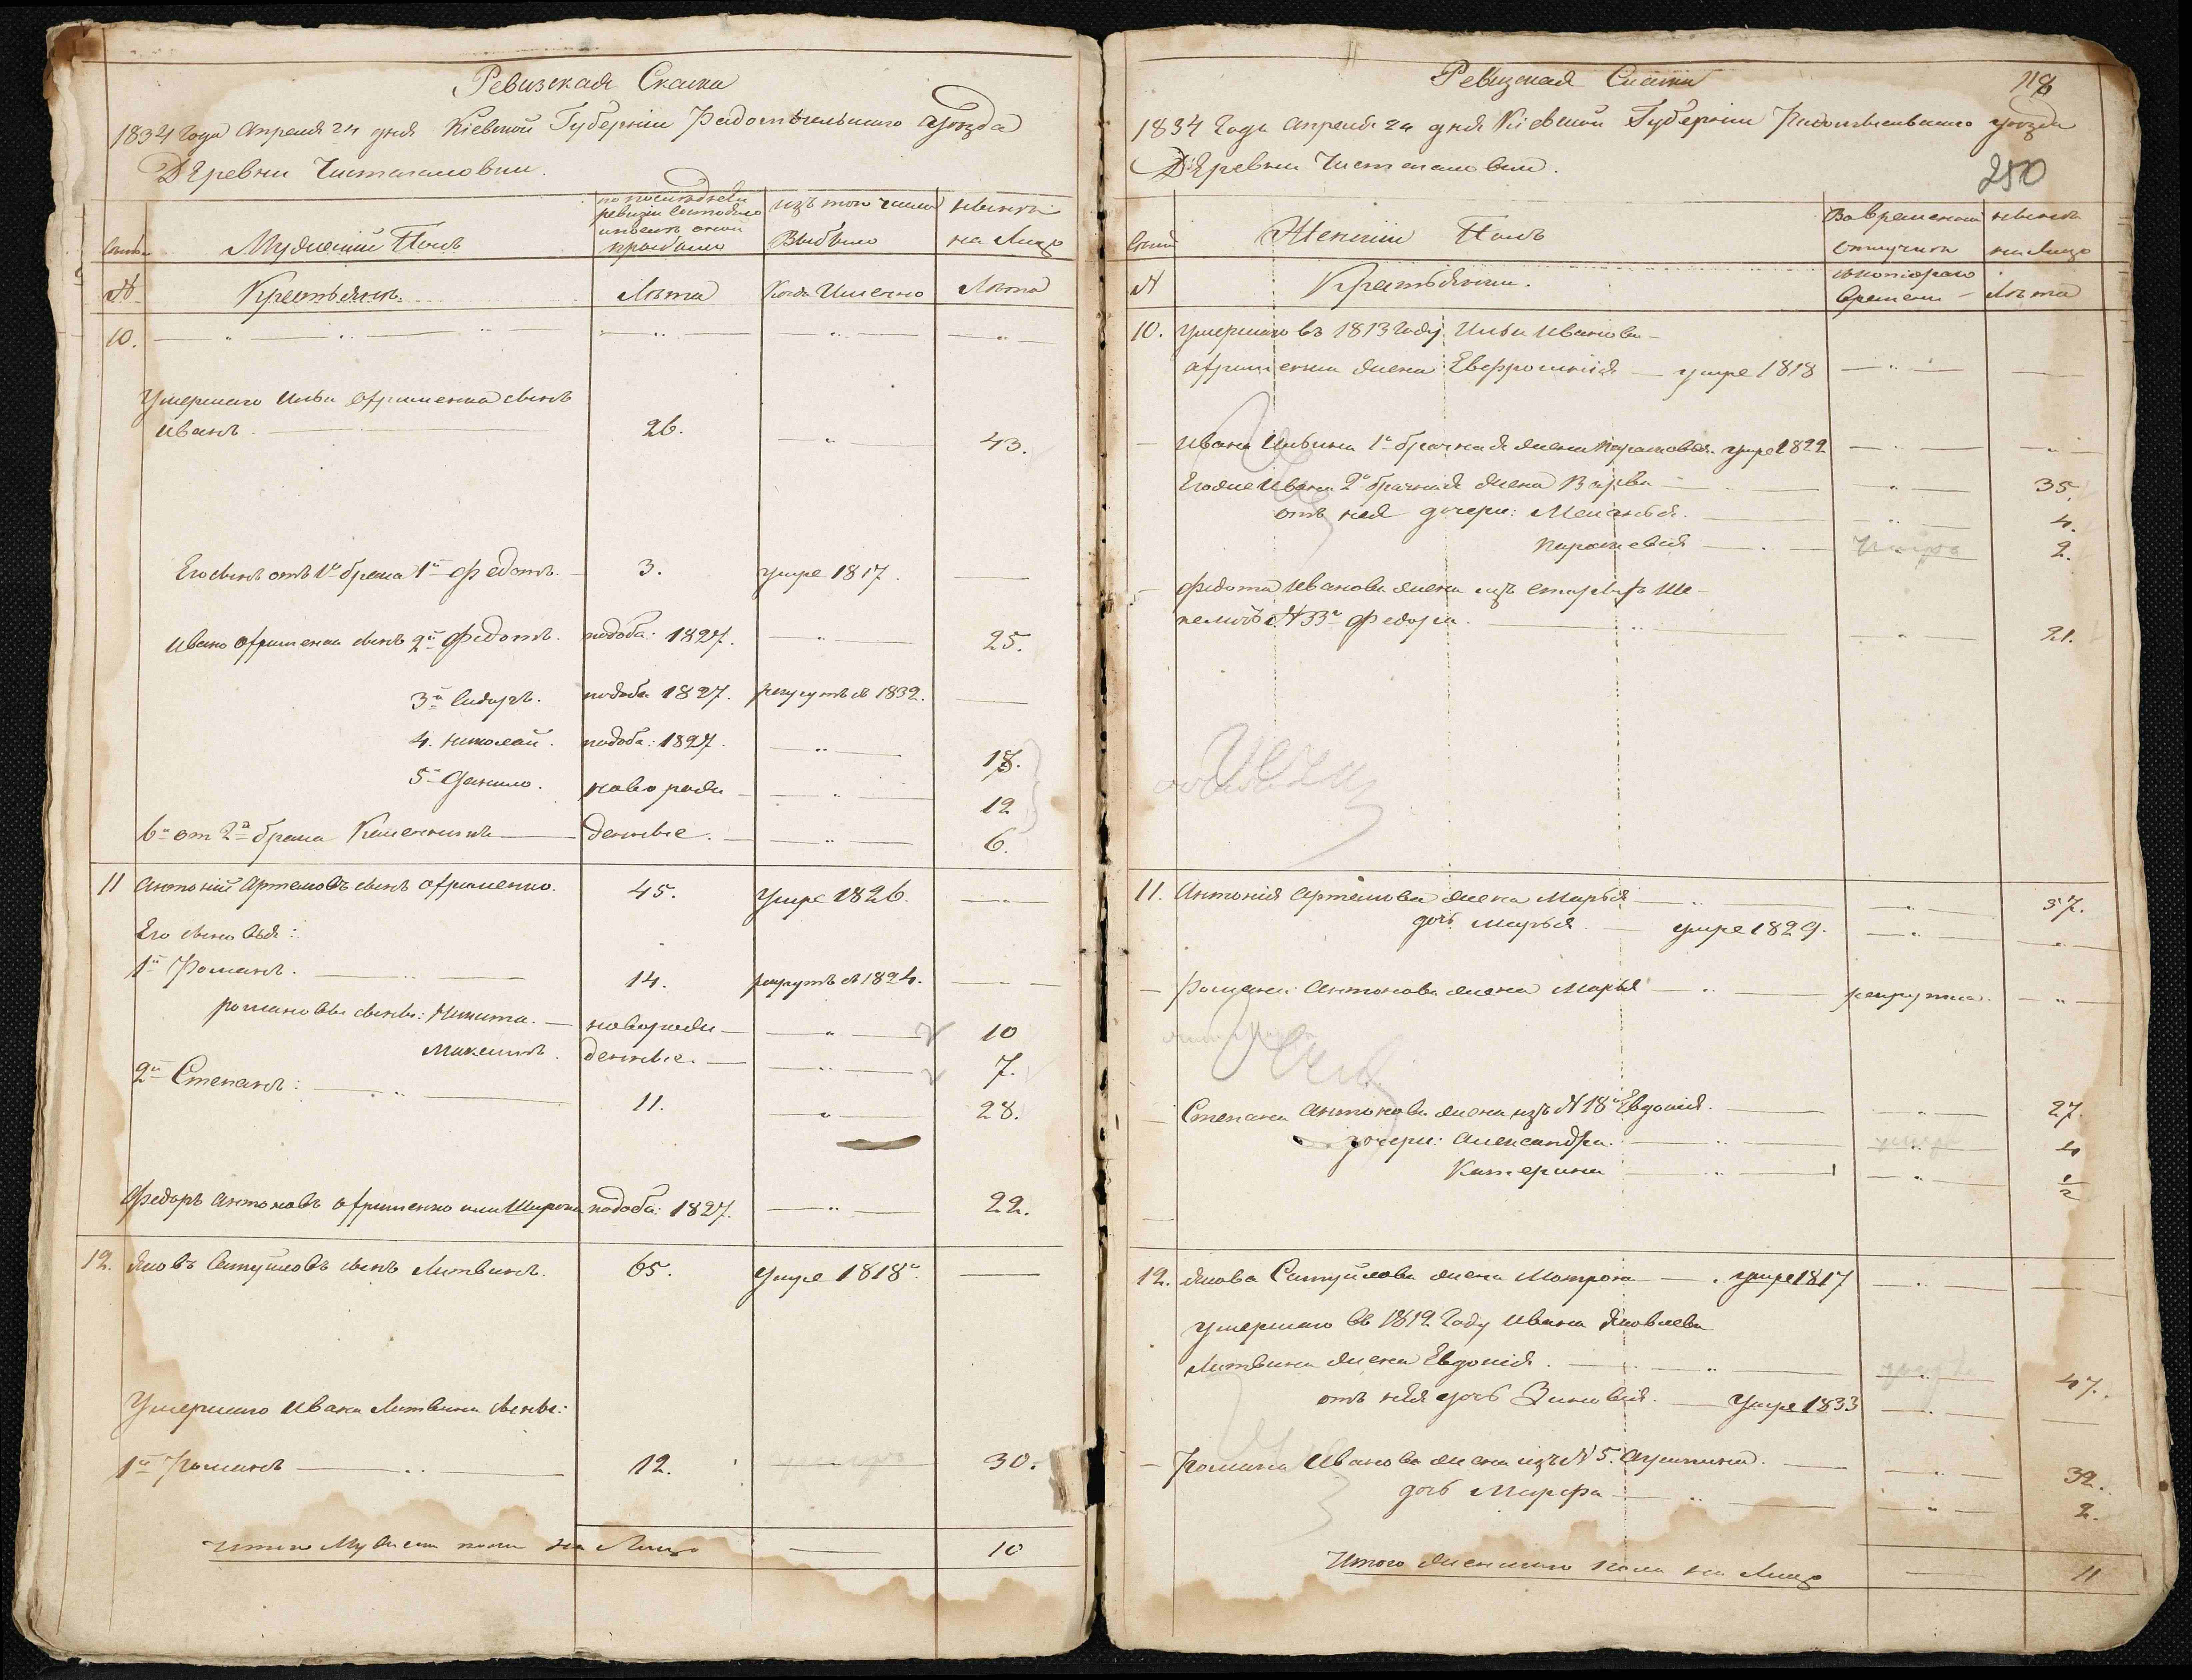 Ревизская Сказка
1834 Года Апреля 24 дня Кіевской Губерніи Радомысльского уѣзда
Деревни
по последней
ревизіи состояло
и послѣ оной
прибыло
изъ того числа
Выбыло
нынѣ
на Лицо
Семьи
Мужескій Полъ
№
Крестьяне.
Лѣта
Когда Именно
Лѣта
10.
Умершаго Ильи Охрименка сынъ
Иванъ
26.
43.
Его сынъ отъ 1го брака 1й Федотъ.
3.
умре 1817.
Ивана Охрименка сынъ 2й Федотъ.
1827.
25.
3й Сидоръ.
1827.
рекрутъ в 1832.
4. Николай.
1827.
18.
5й Данило.
новорож
12
6й от 2го брака
денные.
6.
11
Антоній Артемовъ сынъ Охрименко.
45.
Умре 1826.
Его сыновья:
1й Романъ.
14.
рекрутъ в 1824.
романовы сыны: Никита.
новорож
10
Максимъ.
денные.
7.
2й Степанъ:
11.
28.
Федоръ Антоновъ Охрименко или
1827.
22.
12.
Яковъ Самуйловъ сынъ Литвинъ.
65.
Умре 1818го.
Умершаго Ивана Литвина сыны:
1й Романъ
12.
30.
Итого Мужеска пола на Лицо
10
Ревизская Сказка
118
1834 Года Апреля 24 дня Кіевской Губерніи Радомысльского уѣзда
Деревни
250
Семьи
Женскій Полъ
Во временной
отлучкѣ
нынѣ
на Лицо
№
Крестьянки.
съ котораго
Времени
Лѣта
10.
Умершаго въ 1813 Году Ильи Иванова
Охрименка жена Евфросинія умре 1818
Ивана Ильина 1о брачная жена Парасковья умре 1822
Его же Ивана 2о брачная жена Варвара
35.
отъ нея дочери: Меланья.
4.
Парасковія
2.
Федота Иванова жена изъ
№ 33го Федора.
21.
11.
Антонія Артемова жена Марья
57.
дочь Марья. умре 1829.
Романа Антонова жена Марья
рекрутка.
Степана Антонова жена изъ № 18го Евдокія.
27.
дочери: Александра.
4
Катерина
1/2
12.
Якова Самуйлова жена Мотрона умре 1817
Умершаго въ 1812 Году Ивана Яковлева
Литвина жена Евдокія.
47.
отъ нея дочь Зиновія. Умре 1833
Романа Иванова жена изъ № 5.
32.
дочь Марфа
2.
Итого женскаго пола на Лицо
11